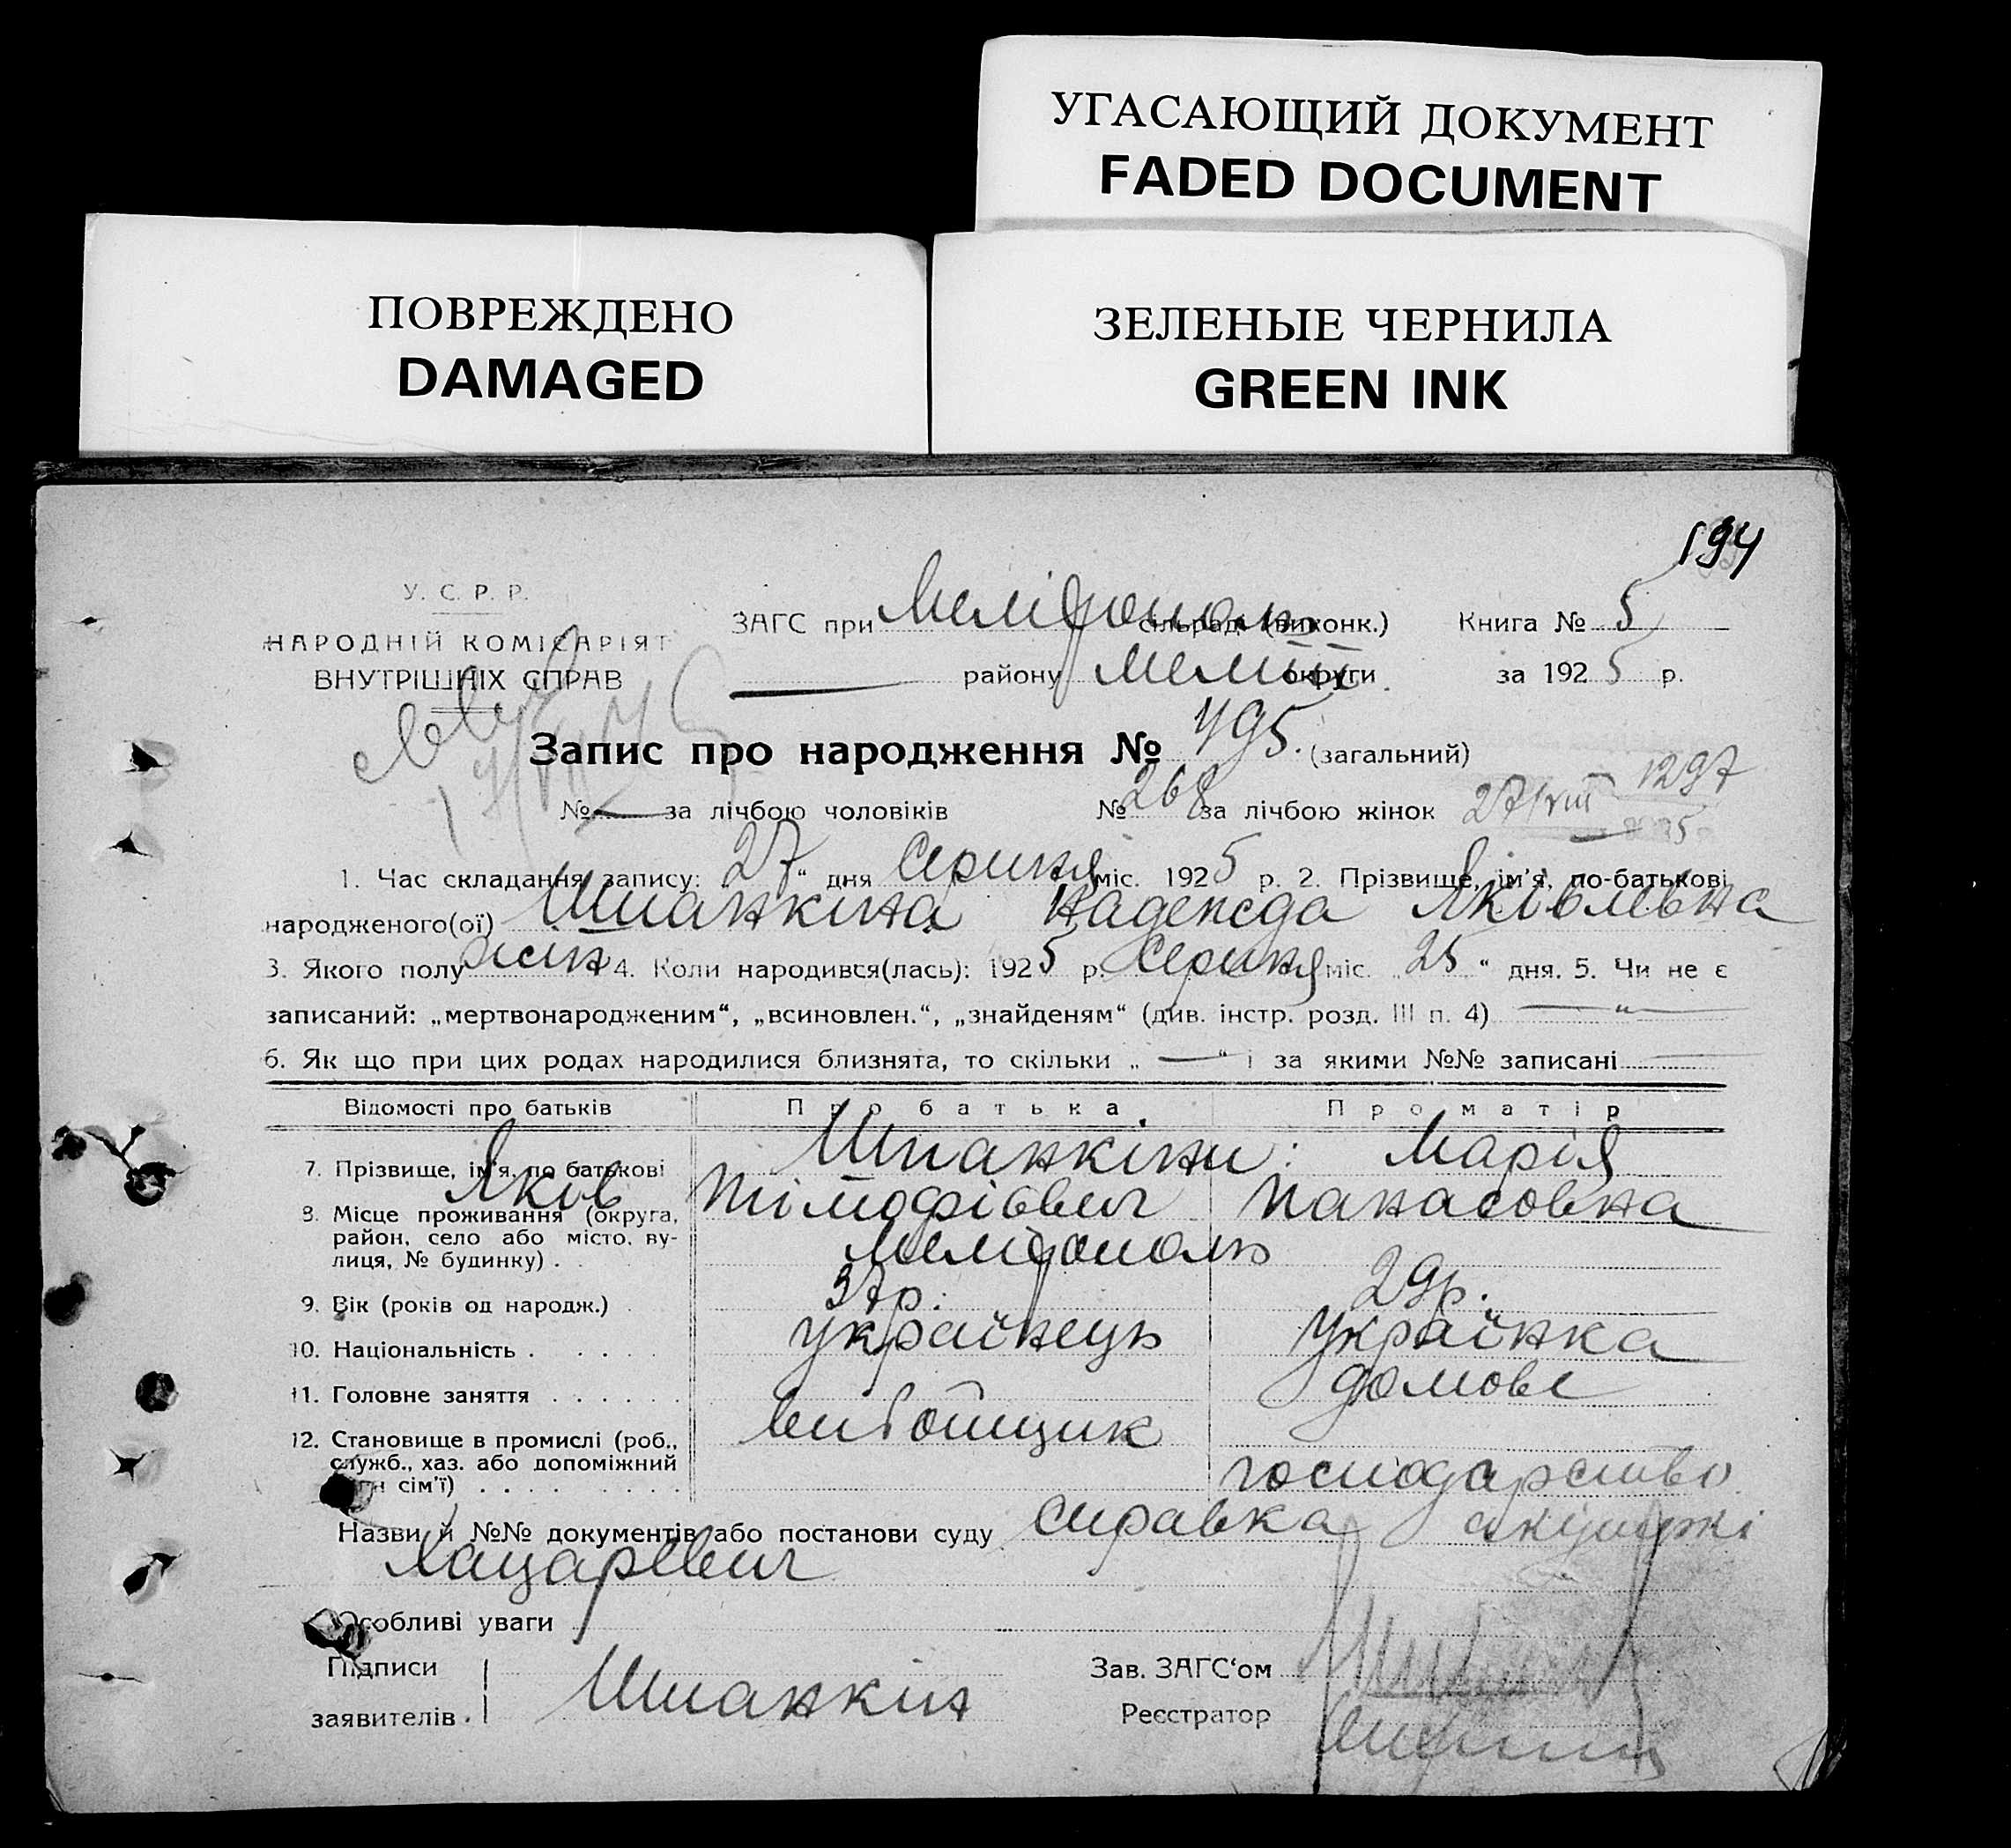 УГАСАЮЩИЙ ДОКУМЕНТ
FADED DOCUMENT
ПОВРЕЖДЕНО
DAMAGED
ЗЕЛЕНЫЕ ЧЕРНИЛА
GREEN INK
194
У. С. Р. Р.
НАРОДНІЙ КОМІСАРІЯТ
ВНУТРІШНІХ СПРАВ
ЗАГС при Мелітополь сільраді (виконк.) Книга № 5
району Меліт округи за 1925 р.
Запис про народження № 495. (загальний)
№ — за лічбою чоловіків № 268 за лічбою жінок 27/VIII 1297
1. Час складання запису: „27“ дня Серпня міс. 1925 р. 2. Прізвище, ім'я, по-батькові
народженого(ої) Шпанкіна Надежда Яківлевна
3. Якого полу жін 4. Коли народився(лась): 1925 р. Серпня міс. 25 “ дня. 5. Чи не є
записаний: „мертвонародженим“, „всиновлен.“, „знайденям“ (див. інстр. розд. III п. 4) — “ —
6. Як що при цих родах народилися близнята, то скільки „ — “ і за якими №№ записані —
Відомості про батьків Про батька Про матір
7. Прізвище, ім'я, по батькові Шпанкіни: Марія
Яков Тімофієвич Панасовна
8. Місце проживання (округа,
район, село або місто, ву-
лиця, № будинку) . Мелітополь
9. Вік (років од народж.) . 37р. 29р.
10. Національність . . . . . українець Українка
11. Головне заняття . . . . . . домове
12. Становище в промислі (роб., вибойщик
служб., хаз. або допоміжний
сім'ї) . . . . . . . . . господарство
Назви й №№ документів або постанови суду справка акушерки
Хацаревич
Особливі уваги
Підписи Зав. ЗАГС'ом
заявителів. Шпанкін Реєстратор